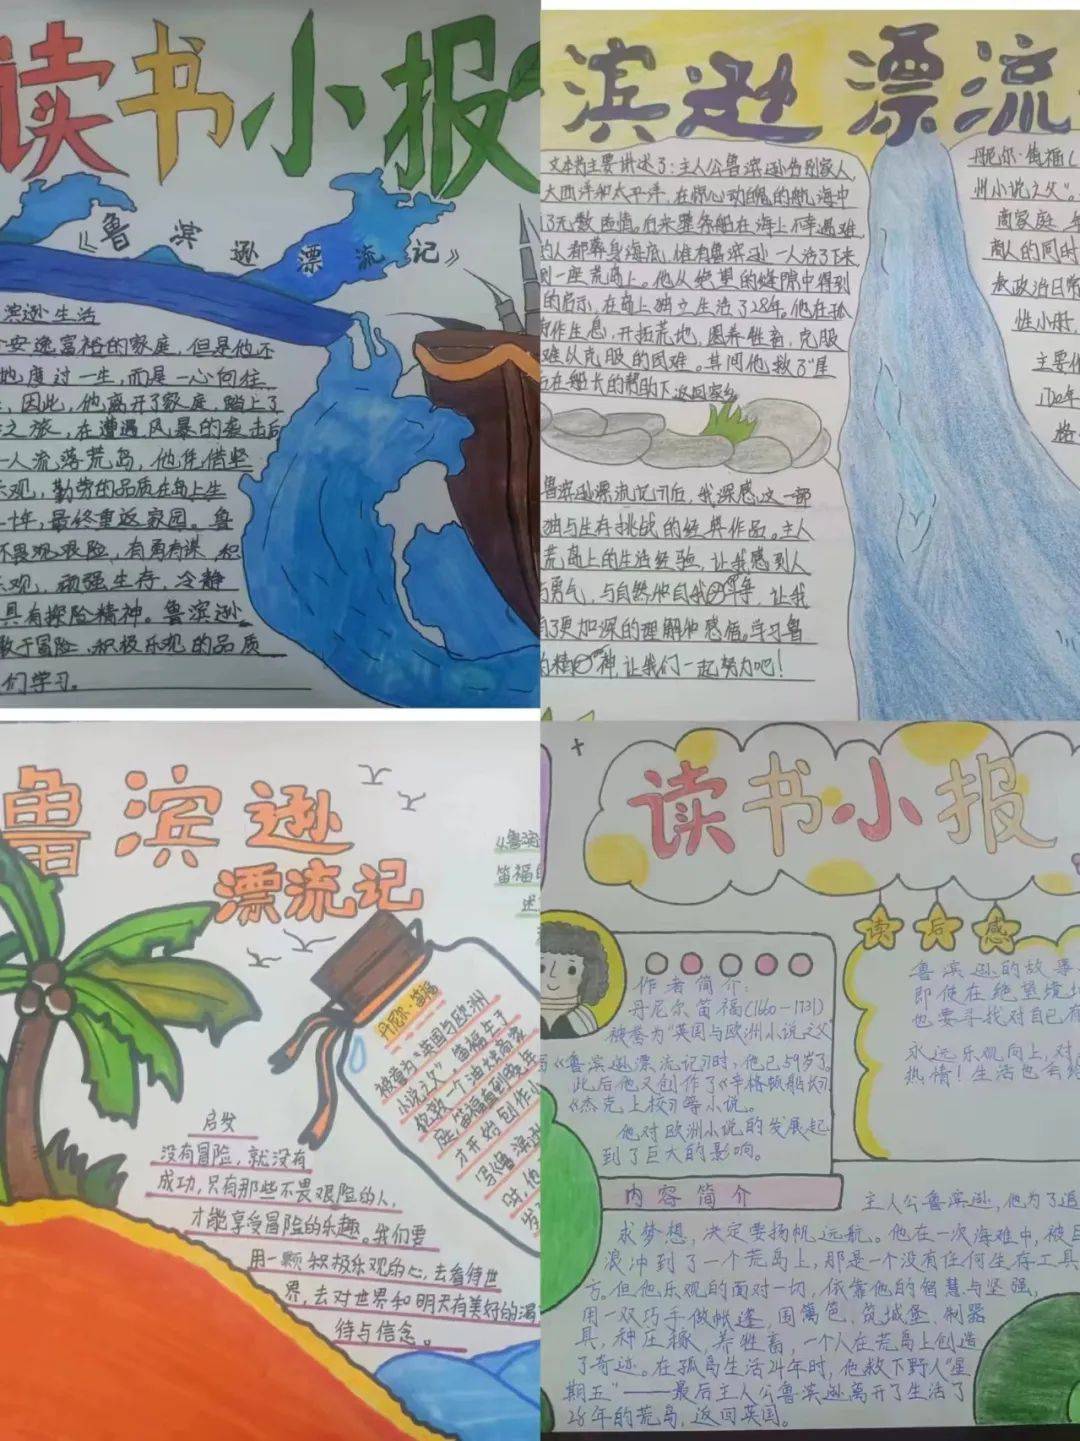 读书小报
《鲁滨逊漂流记》
滨逊生活
安逸富裕的家庭，但是他不
地度过一生，而是一心向往
，因此，他离开了家庭，踏上了
之旅，在遭遇风暴的袭击后
一人流落荒岛，他凭借坚
乐观，勤劳的品质在岛上生
十年，最终重返家园。鲁
不畏观艰险，有勇有谋，积
乐观，顽强生存，冷静
具有探险精神。鲁滨逊
敢于冒险、积极乐观的品质
们学习。
滨逊漂流
文本书主要讲述了：主人公鲁滨逊告别家人
大西洋和太平洋，在惊心动魄的航海中
了无数险情。后来整条船在海上不幸遇难
的人都葬身海底，惟有鲁滨逊一人活了下来
到一座荒岛上。他从绝望的缝隙中得到
的启示，在岛上独立生活了28年。他在孤
作生息，开拓荒地，圈养牲畜，克服
难以克服的困难。其间他救了“星
后在船长的帮助下返回家乡
鲁滨逊漂流记》后，我深感这一部
独与生存挑战的经典作品。主人
荒岛上的生活经验，让我感到人
与勇气，与自然和自我的斗争，让我
有了更加深的理解和感悟。学习鲁
的精神，让我们一起努力吧！
丹尼尔·笛福（
州小说之父”。
商家庭
商人的同时
教政治日常
性小册
主要作
1720年
鲁滨逊
漂流记
《鲁滨
笛福的
述
丹尼尔·笛福
被誉为“英国与欧洲
小说之父”，笛福生于
伦敦一个油烛商家
庭，笛福直到晚年
才开始创作小
写《鲁滨逊
时，他
岁了
启发
没有冒险，就没有
成功，只有那些不畏艰险的人，
才能享受冒险的乐趣。我们要
用一颗积极乐观的心，去看待世
界，去对世界和明天有美好的渴
待与信念。
读书小报
读后感
作者简介：
丹尼尔笛福（1660—1731）
被誉为“英国与欧洲小说之父”
《鲁滨逊漂流记》时，他已59岁了。
此后他又创作了《辛格顿船长》
《杰克上校》等小说。
他对欧洲小说的发展起
到了巨大的影响。
鲁滨逊的故事
即使在绝望境地
也要寻找对自己有
永远乐观向上，对
热情！生活也会给
内容简介
主人公鲁滨逊，他为了追
求梦想，决定要扬帆远航。他在一次海难中，被巨
浪冲到了一个荒岛上，那是一个没有任何生存工具
方。但他乐观的面对一切，依靠他的智慧与坚强，
用一双巧手做帐蓬，围篱笆，筑城堡、制器
具，种庄稼，养牲畜，一个人在荒岛上创造
了奇迹。在孤岛生活24年时，他救下野人“星
期五”——最后主人公鲁滨逊离开了生活了
28年的荒岛，返回英国。